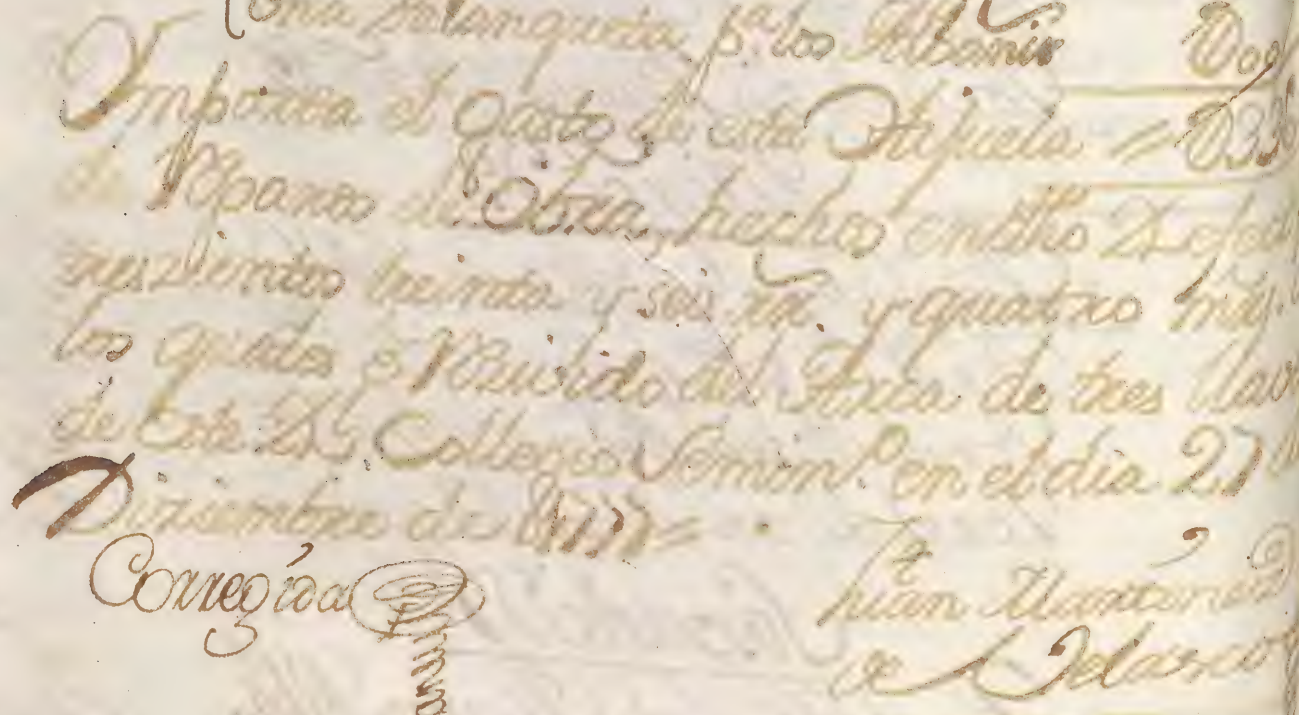 una Palanqueta pª los Albanis Dool
Ymporta el Gasto de esta Hijuela / D33
de Reparos de Obra, hechos en dho
mes Zientos treinta y seis rrs. y quatro mrs.
los quales e Reusivido del Arca de tres llav
de este Rl Collegio Semin.º en el dia 27 de
Diziembre de 1777=
Corregida
Juan Martinez
de Velasco